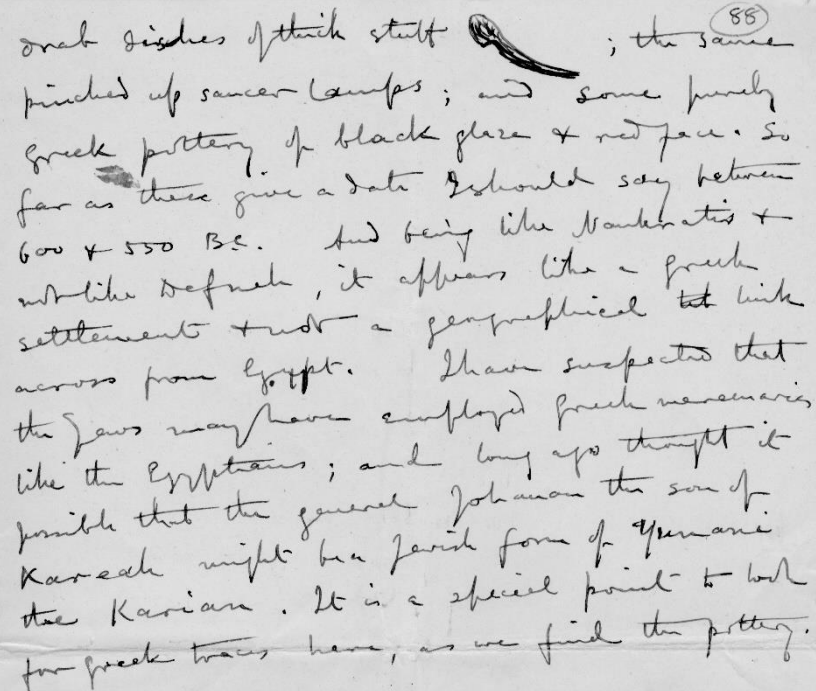 88
drab dishes of thick stuff ; the same
pinched up saucer lamps ; and some purely
Greek pottery of black glaze & red face. So
far as these give a date I should say between
600 & 550 B.C. And being like Naukratis &
not like Defneh, it appears like a Greek
settlement & not a geographical link
across from Egypt. I have suspected that
the Jews may have employed Greek mercenaries
like the Egyptians ; and long ago thought it
possible that the general Johanan the son of
Kareah might be a Jewish form of
the Karian. It is a special point to look
for Greek traces here, as we find the pottery.